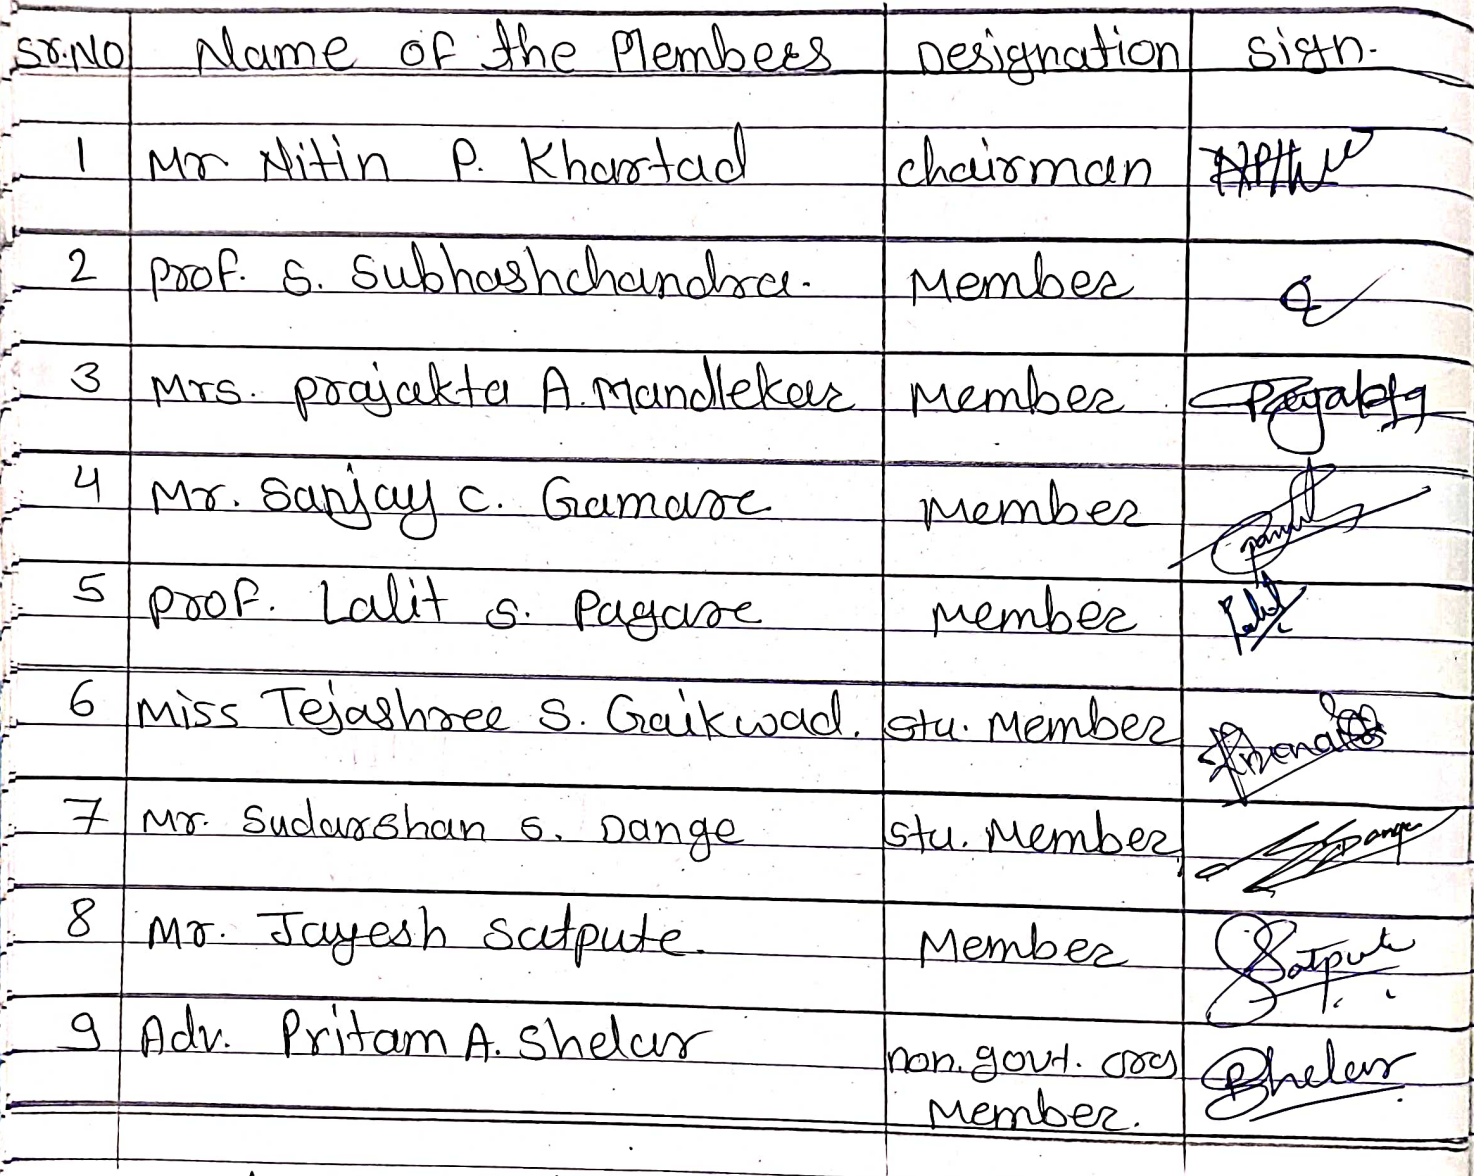 Sr.No Name of the Members Designation Sign.
1 Mr Nitin P. Khartad chairman
2 Prof. S. Subhashchandra. Member
3 Mrs. Prajakta A. Mandlekar Member Prajakta
4 Mr. Sanjay C. Gamare Member
5 Prof. Lalit S. Pagare Member Lalit
6 Miss Tejashree S. Gaikwad. Stu. Member
7 Mr. Sudarshan S. Dange Stu. Member SDange
8 Mr. Jayesh Satpute. Member Satpute
9 Adv. Pritam A. Shelar non. govt. org Shelar
Member.